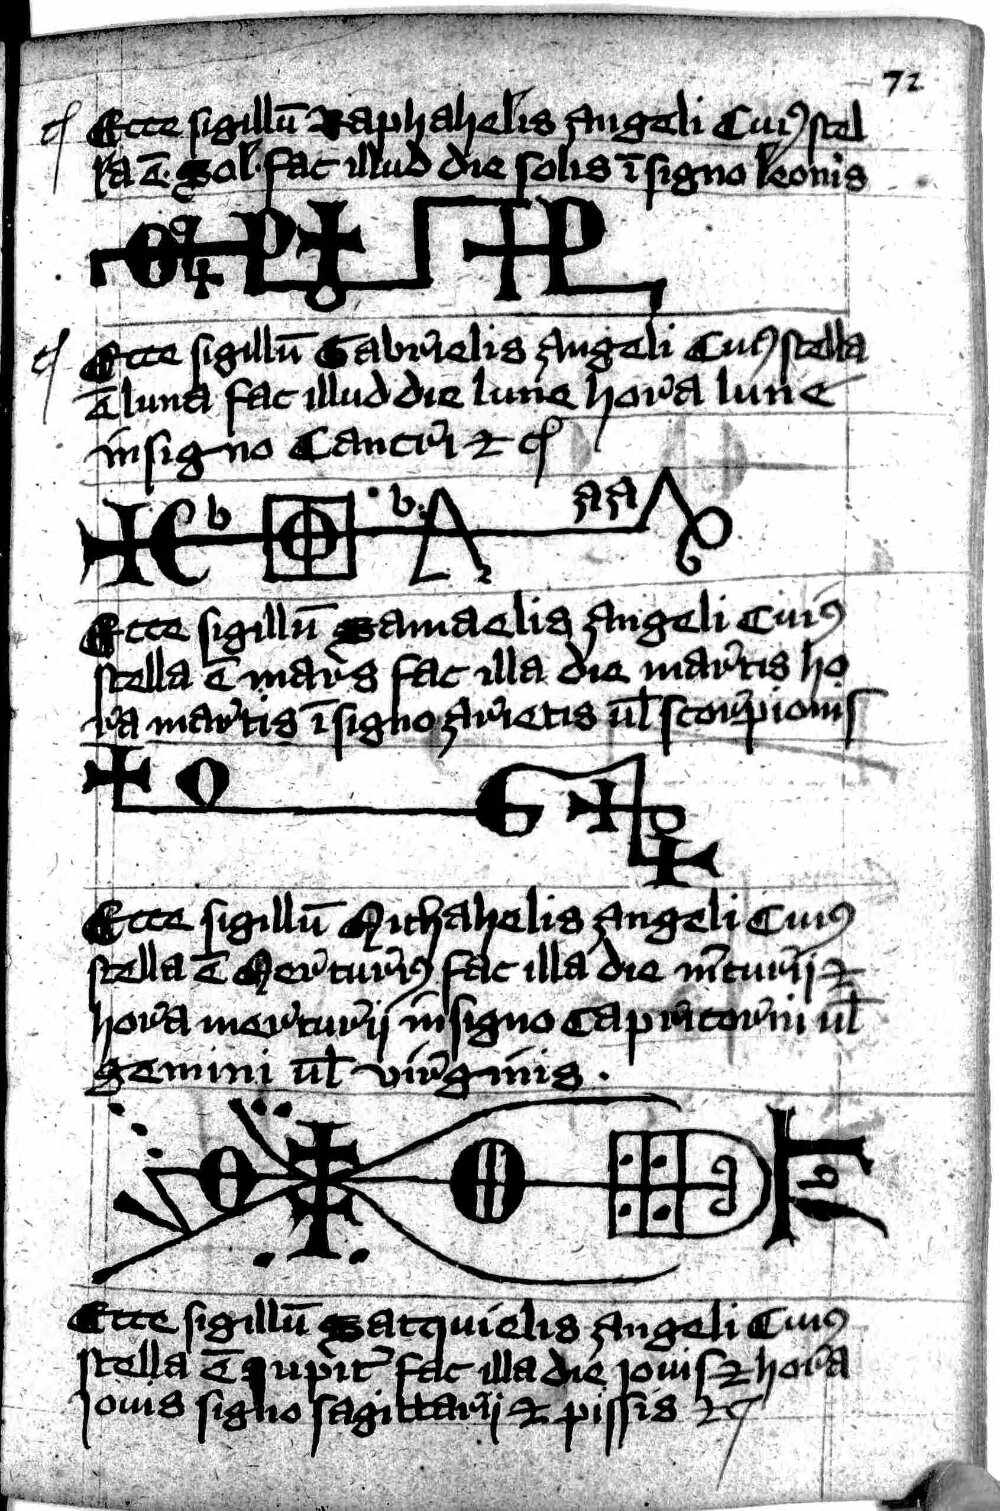 72
Ecce sigillū Raphahelis Angeli Cuiꝰ stel
la ē. Sol. fac illud die solis ī signo leonis
Ecce sigillū Gabrielis Angeli Cuiꝰ stella
ē luna fac illud die lune hora lune
in signo Cancri ⁊ cꝭ
b b. a a
Ecce sigillū Samaelis Angeli Cuiꝰ
stella ē mars fac illa die martis ho
ra martis ī signo Arietis ūl scorpionis
Ecce sigillū Michahelis Angeli Cuiꝰ
stella ē Mercuriꝰ fac illa die m̄curij ⁊
hora mercurij in signo Capricorni ūl
gemini ūl virginis .
Ecce sigillū Satquielis Angeli Cuiꝰ
stella ē Jupit̄ fac illa die Jouis ⁊ hora
Jouis signo sagittarij ⁊ pissis ⁊c